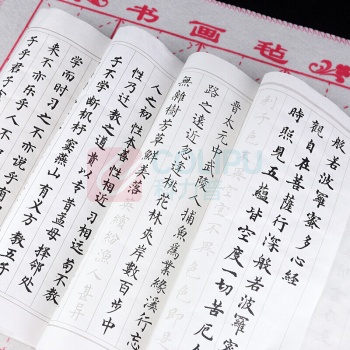 书画毡
般若波羅蜜多心經
觀自在菩薩行深般若波羅蜜
時照見五蘊皆空度一切苦厄
晉太元中武陵人捕魚為業緣溪行忘
路之遠近忽逢桃花林夾岸數百步中
無雜樹芳草鮮美落
繽紛漁人甚異
人之初性本善性相近习相远苟不教
性乃迁教之道贵以专昔孟母择邻处
子不学断机杼窦燕山有义方教五子
学而时习之不亦说乎有
来不亦乐乎人不